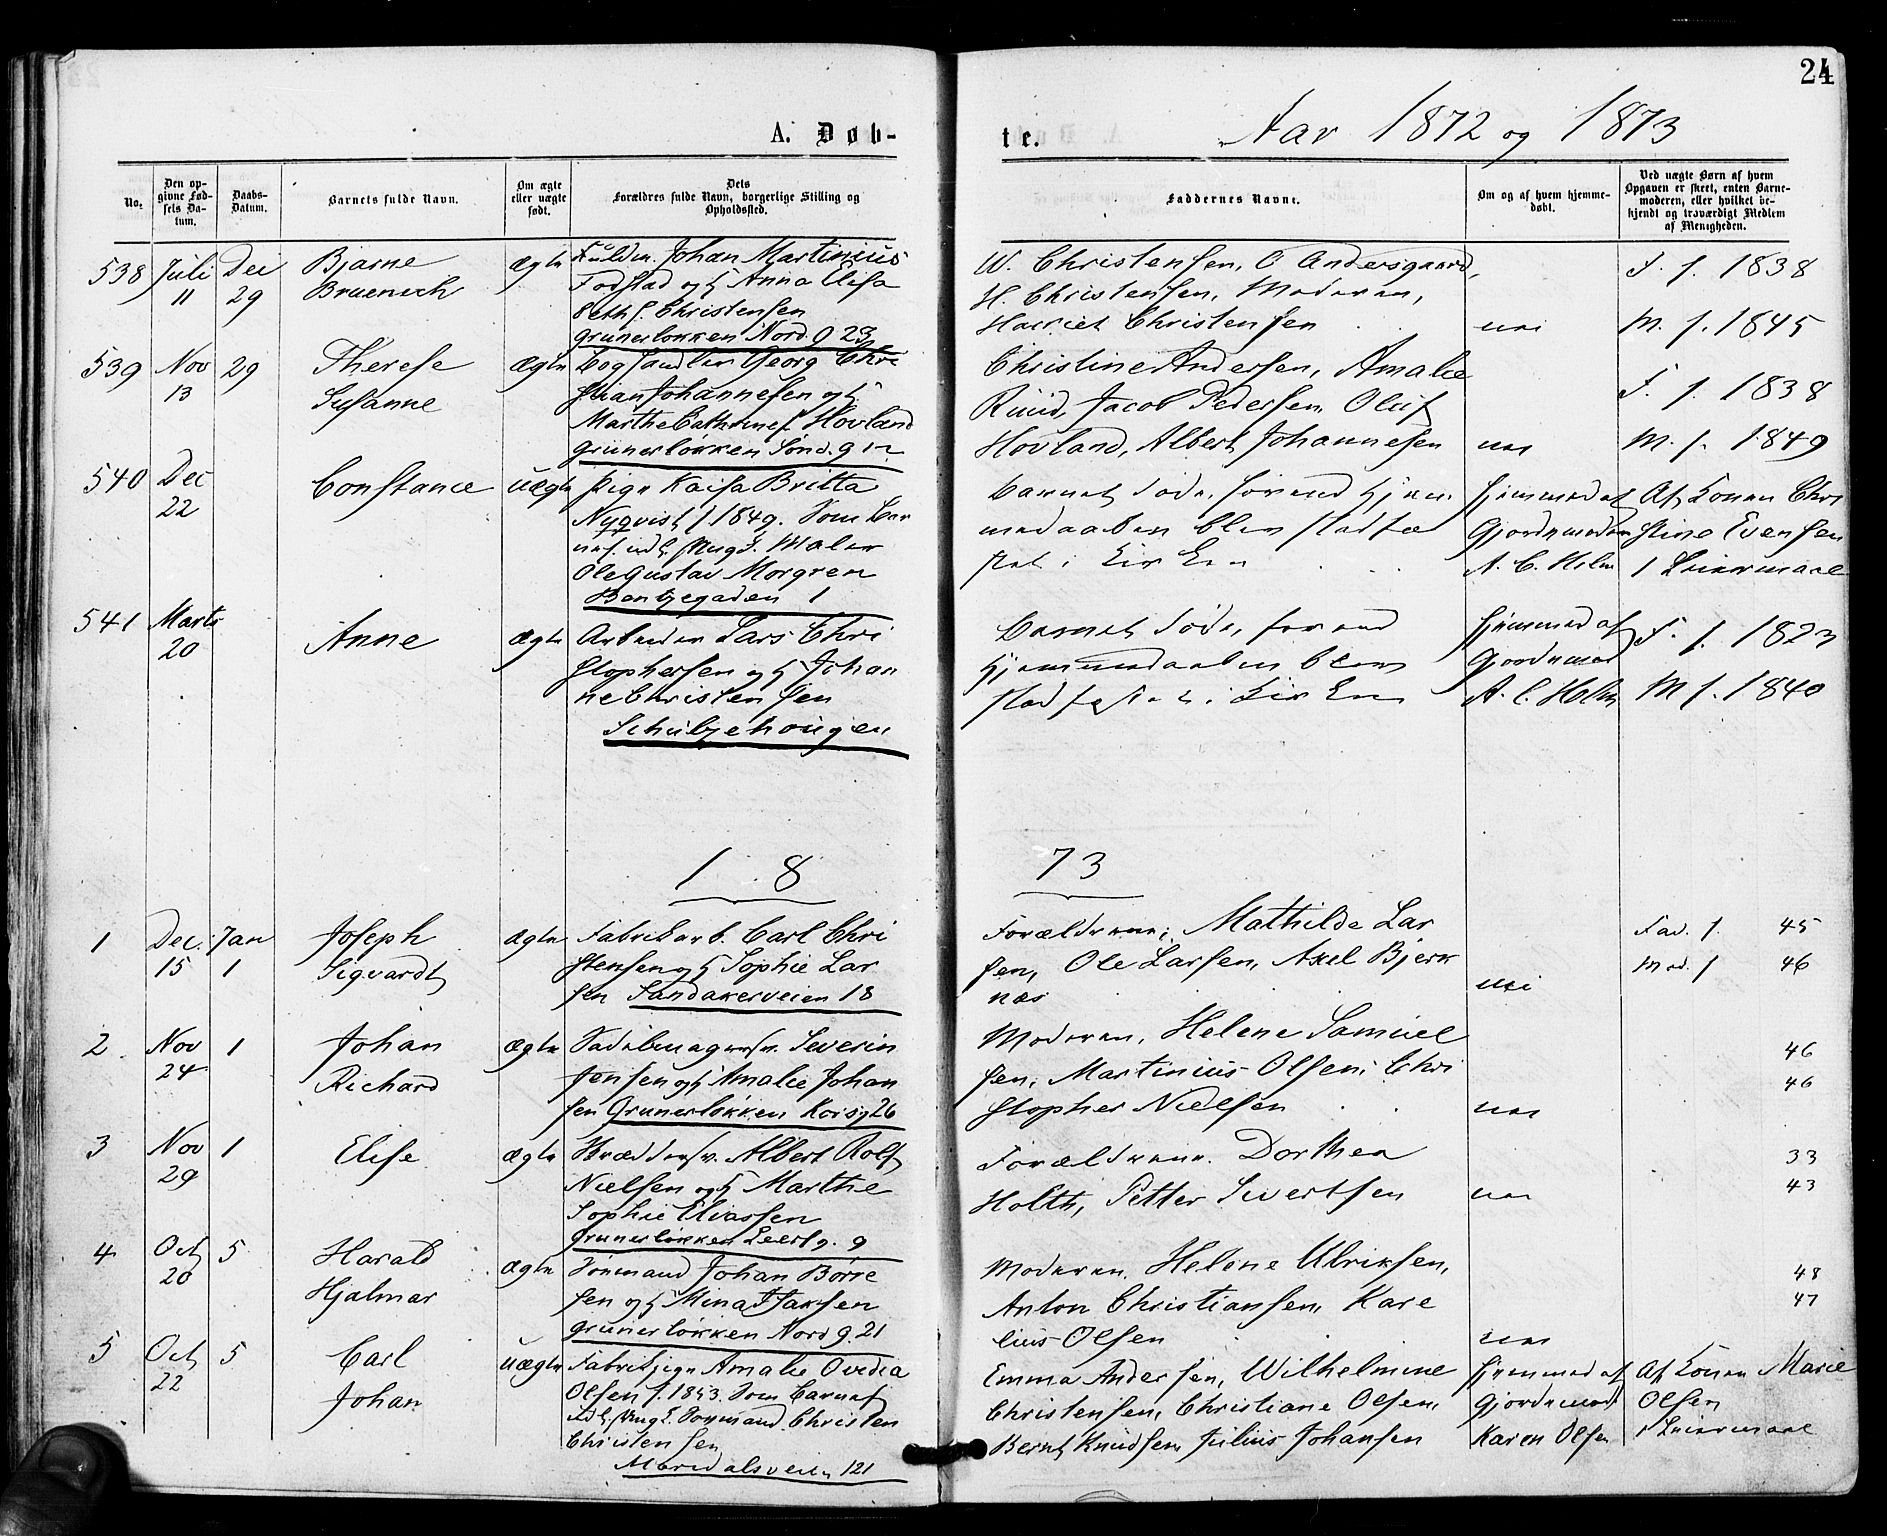 24
A. Døb-
te.
Aar 1872 og 1873
No.
Den op-
givne Fød-
sels Da-
tum.
Daabs-
Datum.
Barnets fulde Navn.
Om ægte
eller uægte
født.
Dets
Forældres fulde Navn, borgerlige Stilling og
Opholdssted.
Faddernes Navne.
Om og af hvem hjemme-
døbt.
Ved uægte Børn af hvem
Opgaven er skeet, enten Barne-
moderen, eller hvilket be-
kjendt og troværdigt Medlem
af Menigheden.
538
Juli
11
Dec
29
Bjarne
Bruenech
ægte
Johan Martinius
Fodstad og H Anna Elisa
beth f. Christensen
Grunerløkken Nord. g 23
W. Christensen, O Andersgaard,
H. Christensen, Moderen,
Harriet Christensen
nei
F. f. 1838
M. f. 1845
539
Nov
13
29
Therese
Susanne
ægte
Georg Chri
stian Johannesen og H
Marthe Cathrine f. Hovland
Grunerløkken Sønd. g 12
Christine Andersen, Amalie
Ruud, Jacob Pedersen Oluf
Hovland, Albert Johannesen
nei
F. f. 1838
M. f. 1849
540
Dec
22
Constance
uægte
Pige Kaisa Britta
Nyqvist f. 1849. Som Bar
nef. udl. Ungk. Maler
Ole Gustav Morgren
Bentzegaden 1
Barnet døde, førend hjem
medaaben blev stadfæ
stet i Kirken
hjemmed af
Gjordemoder
A. C. Holm
Af Konen Chri
stine Evensen
1 Leiermaal
541
Marts
20
Anne
ægte
Arbeider Lars Chri
stophersen og H Johan
ne Christensen
Schultzehougen
Barnet døde, førend
hjemmedaaben blev
stadfæstet i Kirken
hjemmed af
Gjordemod
A. C. Holm
F. f. 1823
M f. 1840
1 8
73
1
Dec.
15
Jan
1
Joseph
Sigvardt
ægte
Fabrikarb. Carl Chri
stensen og H Sophie Lar
sen Sandakerveien 18
Forældrene, Mathilde Lar
sen, Ole Larsen, Axel Bjerk
næs
nei
Fad. f. 45
Mod. f 46
2
Nov
24
1
Johan
Richard
ægte
Sadelmagersv. Severin
Jensen og H Amalie Johan
sen Grunerløkken Korsg 26
Moderen, Helene Samuel
sen, Martinius Olsen, Chri
stopher Nielsen
nei
46
46
3
Nov
29
1
Elise
ægte
Albert Rolf
Nielsen og H Marthe
Sophie Eliassen
Grunerløkken Leerbg. 9
Forældrene. Dorthea
Holth, Petter Sivertsen
nei
33
43
4
Oct
20
5
Harald
Hjalmar
ægte
Sømand Johan Børre
sen og H Mina Isaksen
Grunerløkken Nord g. 21
Moderen. Helene Ulriksen,
Anton Christiansen, Kare
lius Olsen
nei
48
47
5
Oct
22
5
Carl
Johan
uægte
Fabrikpige Amalie Ovedia
Olsen f. 1853. Som Barnef
udl. Ungk. Sømand Christen
Christensen
Maridalsveien 121
Emma Andersen, Wilhelmine
Christensen, Christiane Olsen,
Bernt Knudsen Julius Johansen
hjemmed af
Gjordemod
Karen Olsen
Af Konen Marie
Olsen
1 Leiermaal